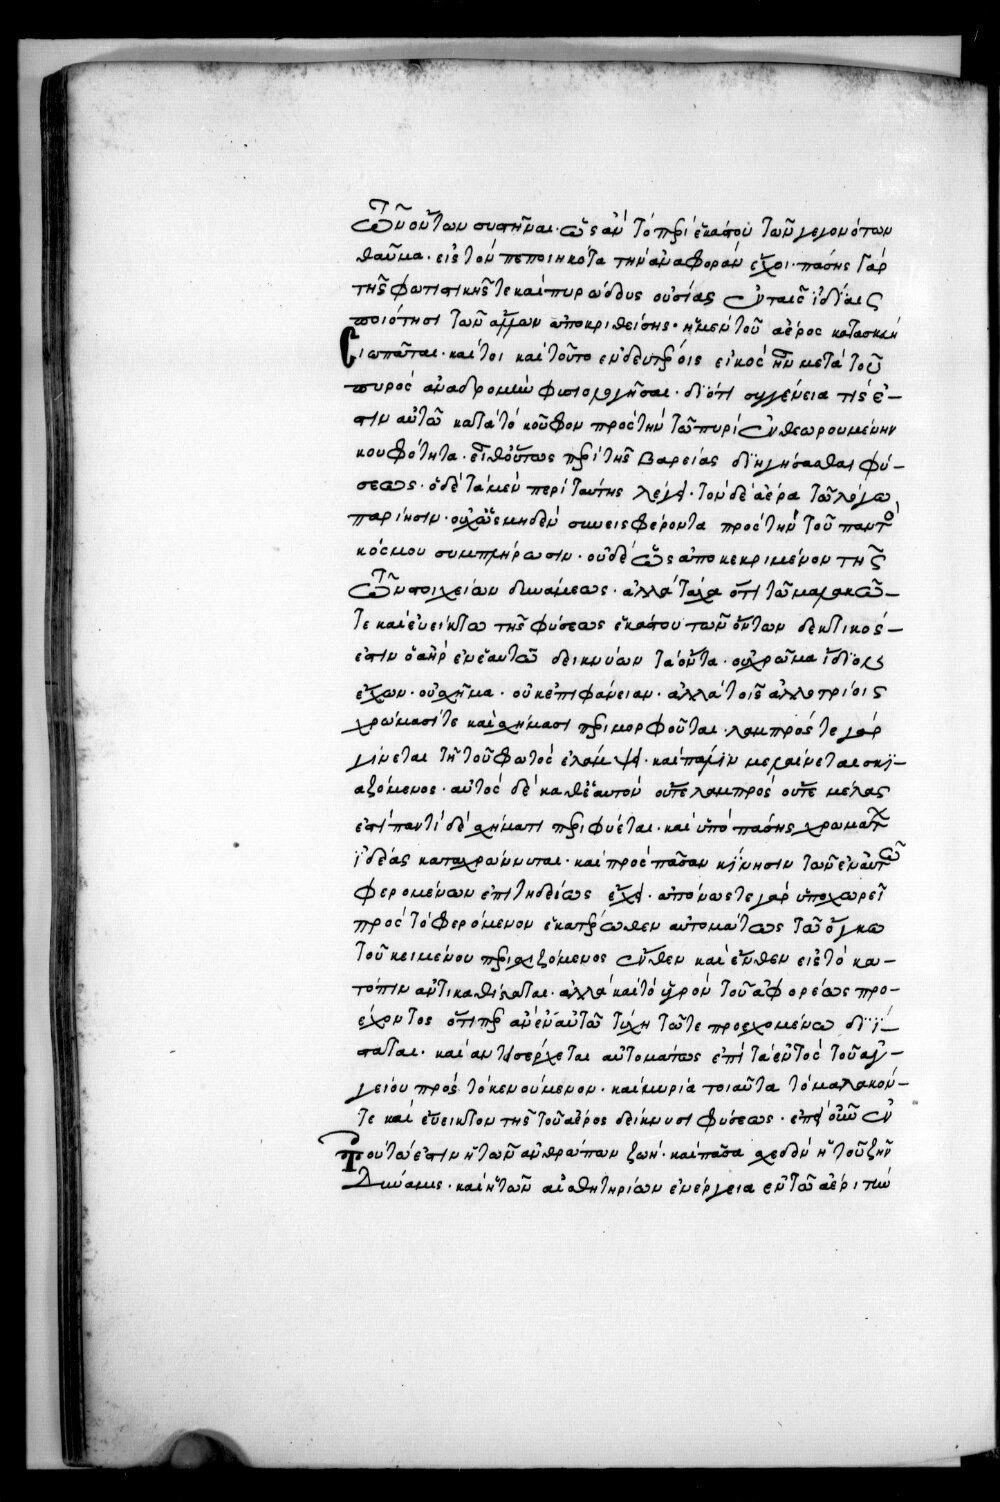 τῶν ὄντων συστῆναι· ὡς ἂν τὸ περὶ ἕκαστου τῶν γεγονότων
θαῦμα· εἰς τὸν πεποιηκότα τὴν ἀναφορὰν ἔχοι· πάσης γὰρ
τῆς φωτιστικῆς τε καὶ πυρώδους οὐσίας ἐν ταῖς ἰδίαις
ποιότησι τῶν ἄλλων ἀποκριθείσης· ἡ μὲν τοῦ ἀέρος κατασκευὴ
σιωπᾶται· καίτοι καὶ τοῦτο ἐν δευτέροις εἰκὸς ἦν μετὰ τοῦ
πυρὸς ἀναδρομὴν φυσιολογῆσαι· διότι συγγένεια τίς ἐ-
στιν αὐτῶ κατὰ τὸ κοῦφον πρὸς τὴν τῶ πυρὶ ἐνθεωρουμένην
κουφότητα· εἶθ' οὕτως περὶ τῆς βαρείας διηγήσασθαι φύ-
σεως· ὁ δὲ τὰ μὲν περὶ ταύτης λέγει· τὸν δὲ ἀέρα τῶ λόγω
παρίησιν· οὐχ ὡς μηδὲν συνεισφέροντα πρὸς τὴν τοῦ παντὸς
κόσμου συμπλήρωσιν· οὐδὲ ὡς ἀποκεκριμένον τῆς
τῶν στοιχείων δυνάμεως· ἀλλὰ τάχα ὅτι τῶ μαλακῶ-
τε καὶ εὐείκτω τῆς φύσεως ἑκάστου τῶν ὄντων δεκτικός-
ἐστιν ὁ ἀὴρ ἐν ἑαυτῶ δεικνύων τὰ ὄντα· οὐ χρῶμα ἴδιον
ἔχων· οὐ σχῆμα· οὐκ ἐπιφάνειαν· ἀλλὰ τοῖς ἀλλοτρίοις
χρώμασί τε καὶ σχήμασι περιμορφοῦται· λαμπρός τε γὰρ
γίνεται τῆ τοῦ φωτὸς ἐλλάμψει· καὶ πάλιν μελαίνεται σκι-
αζόμενος· αὐτὸς δὲ καθ' ἑαυτὸν οὔτε λαμπρὸς οὔτε μέλας
ἐστὶ παντὶ δὲ σχήματι περιφύεται· καὶ ὑπὸ πάσης χρωμάτων
ἰδέας καταχρώννυται· καὶ πρὸς πᾶσαν κίνησιν τῶν ἐν αὐτῶ
φερομένων ἐπιτηδείως ἔχει· ἀπόνως τε γὰρ ὑποχωρεῖ
πρὸς τὸ φερόμενον ἑκατέρωθεν αὐτομάτως τῶ ὄγκω
τοῦ κειμένου περισχιζόμενος ἔνθεν καὶ ἔνθεν εἰς τὸ κα-
τόπιν ἀντικαθίσταται· ἀλλὰ καὶ τὸ ὑγρὸν τοῦ ἀμφορέως προ-
έχοντος ὅτιπερ ἂν ἐν αὐτῶ τύχη τῶ τε προσχομένω διΐ-
σταται· καὶ ἀντεισέρχεται αὐτομάτως ἐπὶ τὰ ἐντὸς τοῦ ἀγ-
γείου πρὸς τὸ κενούμενον· καὶ μυρία τοιαῦτα τὸ μαλακόν-
τε καὶ εὔεικτον τῆς τοῦ ἀέρος δείκνυσι φύσεως· ἐπεὶ οὖν ἐν
τούτω ἐστιν ἡ τῶν ἀνθρώπων ζωή· καὶ πᾶσα σχεδὸν ἡ τοῦ ζῆν
δύναμις· καὶ ἡ τῶν αἰσθητηρίων ἐνέργεια ἐν τῶ ἀέρι τὴν